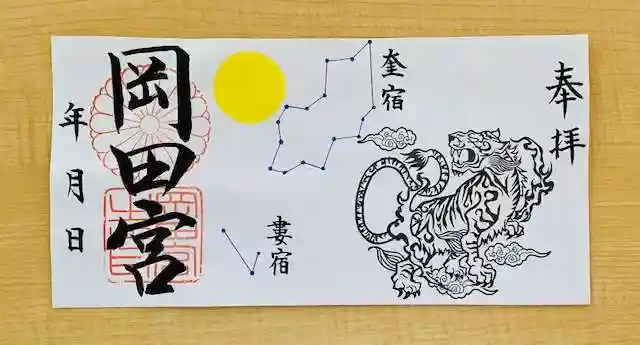 奉拝
奎宿
婁宿
岡田宮
年月日